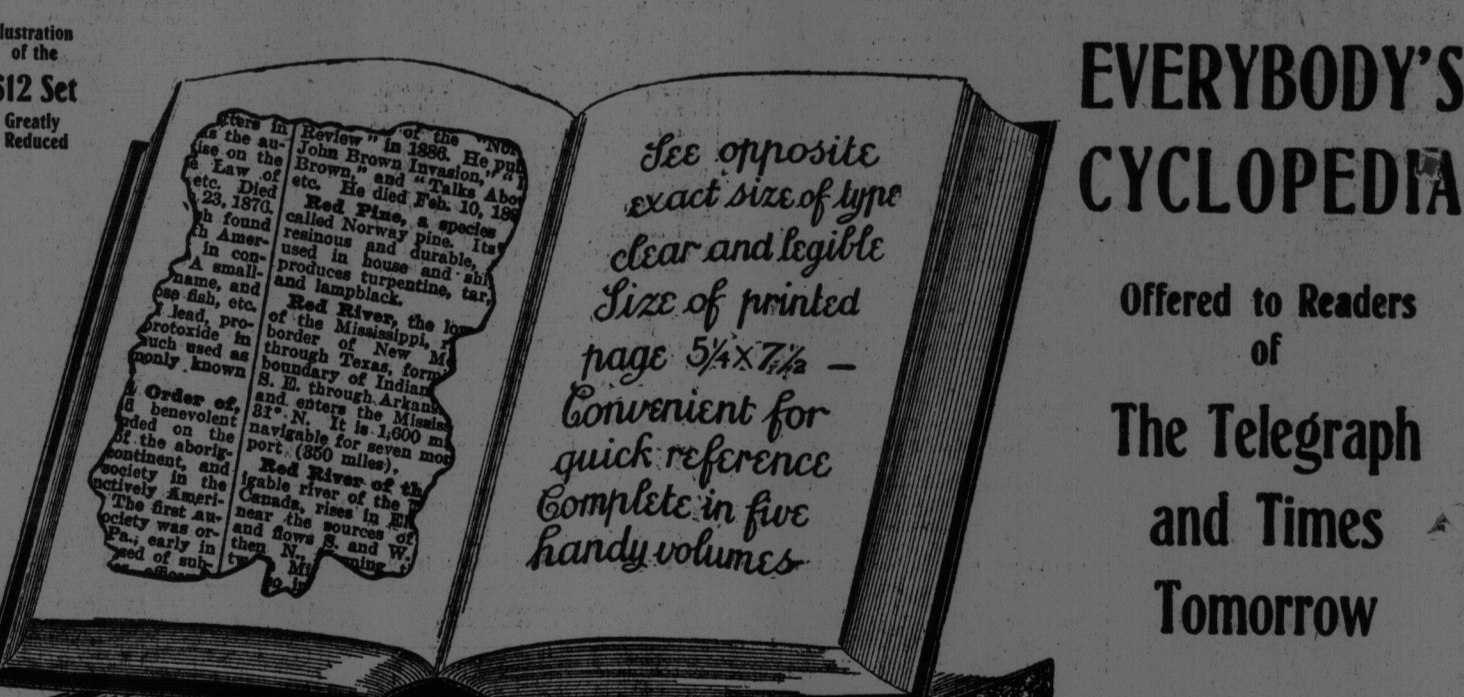 lustration
of the
$12 Set
Greatly
Reduced
tters in
as the au-
ise on the
e Law of
etc. Died
23, 1870.
gh found
th Amer-
in con-
A small-
name, and
ose fish, etc.
f lead, pro-
protoxide in
much used as
monly known
Order of,
d benevolent
nded on the
of the aborig-
continent, and
society in the
nctively Ameri-
The first au-
ociety was or-
Pa., early in
sed of sub-
of the "Nor
Review" in 1886. He pub
John Brown Invasion,"
Brown," and "Talks Abo
etc. He died Feb. 10, 189
Red Pine, a species
called Norway pine. Its
resinous and durable,
used in house and shi
produces turpentine, tar,
and lampblack.
Red River, the lo
of the Mississippi, r
border of New M
through Texas, form
boundary of Indian
S. E. through Arkans
and enters the Missis
31° N. It is 1,600 mi
navigable for seven mon
port (350 miles).
Red River of th
igable river of the
Canada, rises in El
near the sources of
and flows S. and W.
then N.,
See opposite
exact size of type
clear and legible
Size of printed
page 5¼ x 7½ —
Convenient for
quick reference
Complete in five
handy volumes
EVERYBODY'S
CYCLOPEDIA
Offered to Readers
of
The Telegraph
and Times
Tomorrow